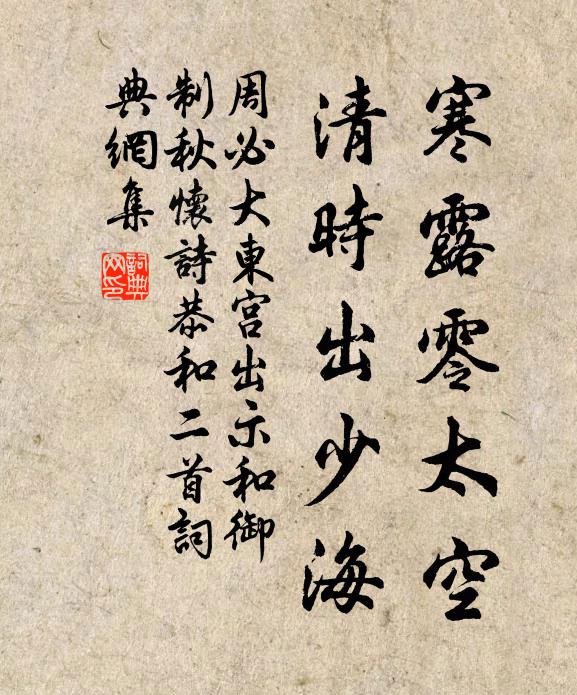 寒露零太空
清時出少海
周必大東宮出示和御
制秋懷詩恭和二首詞
典網集
詞典
网印